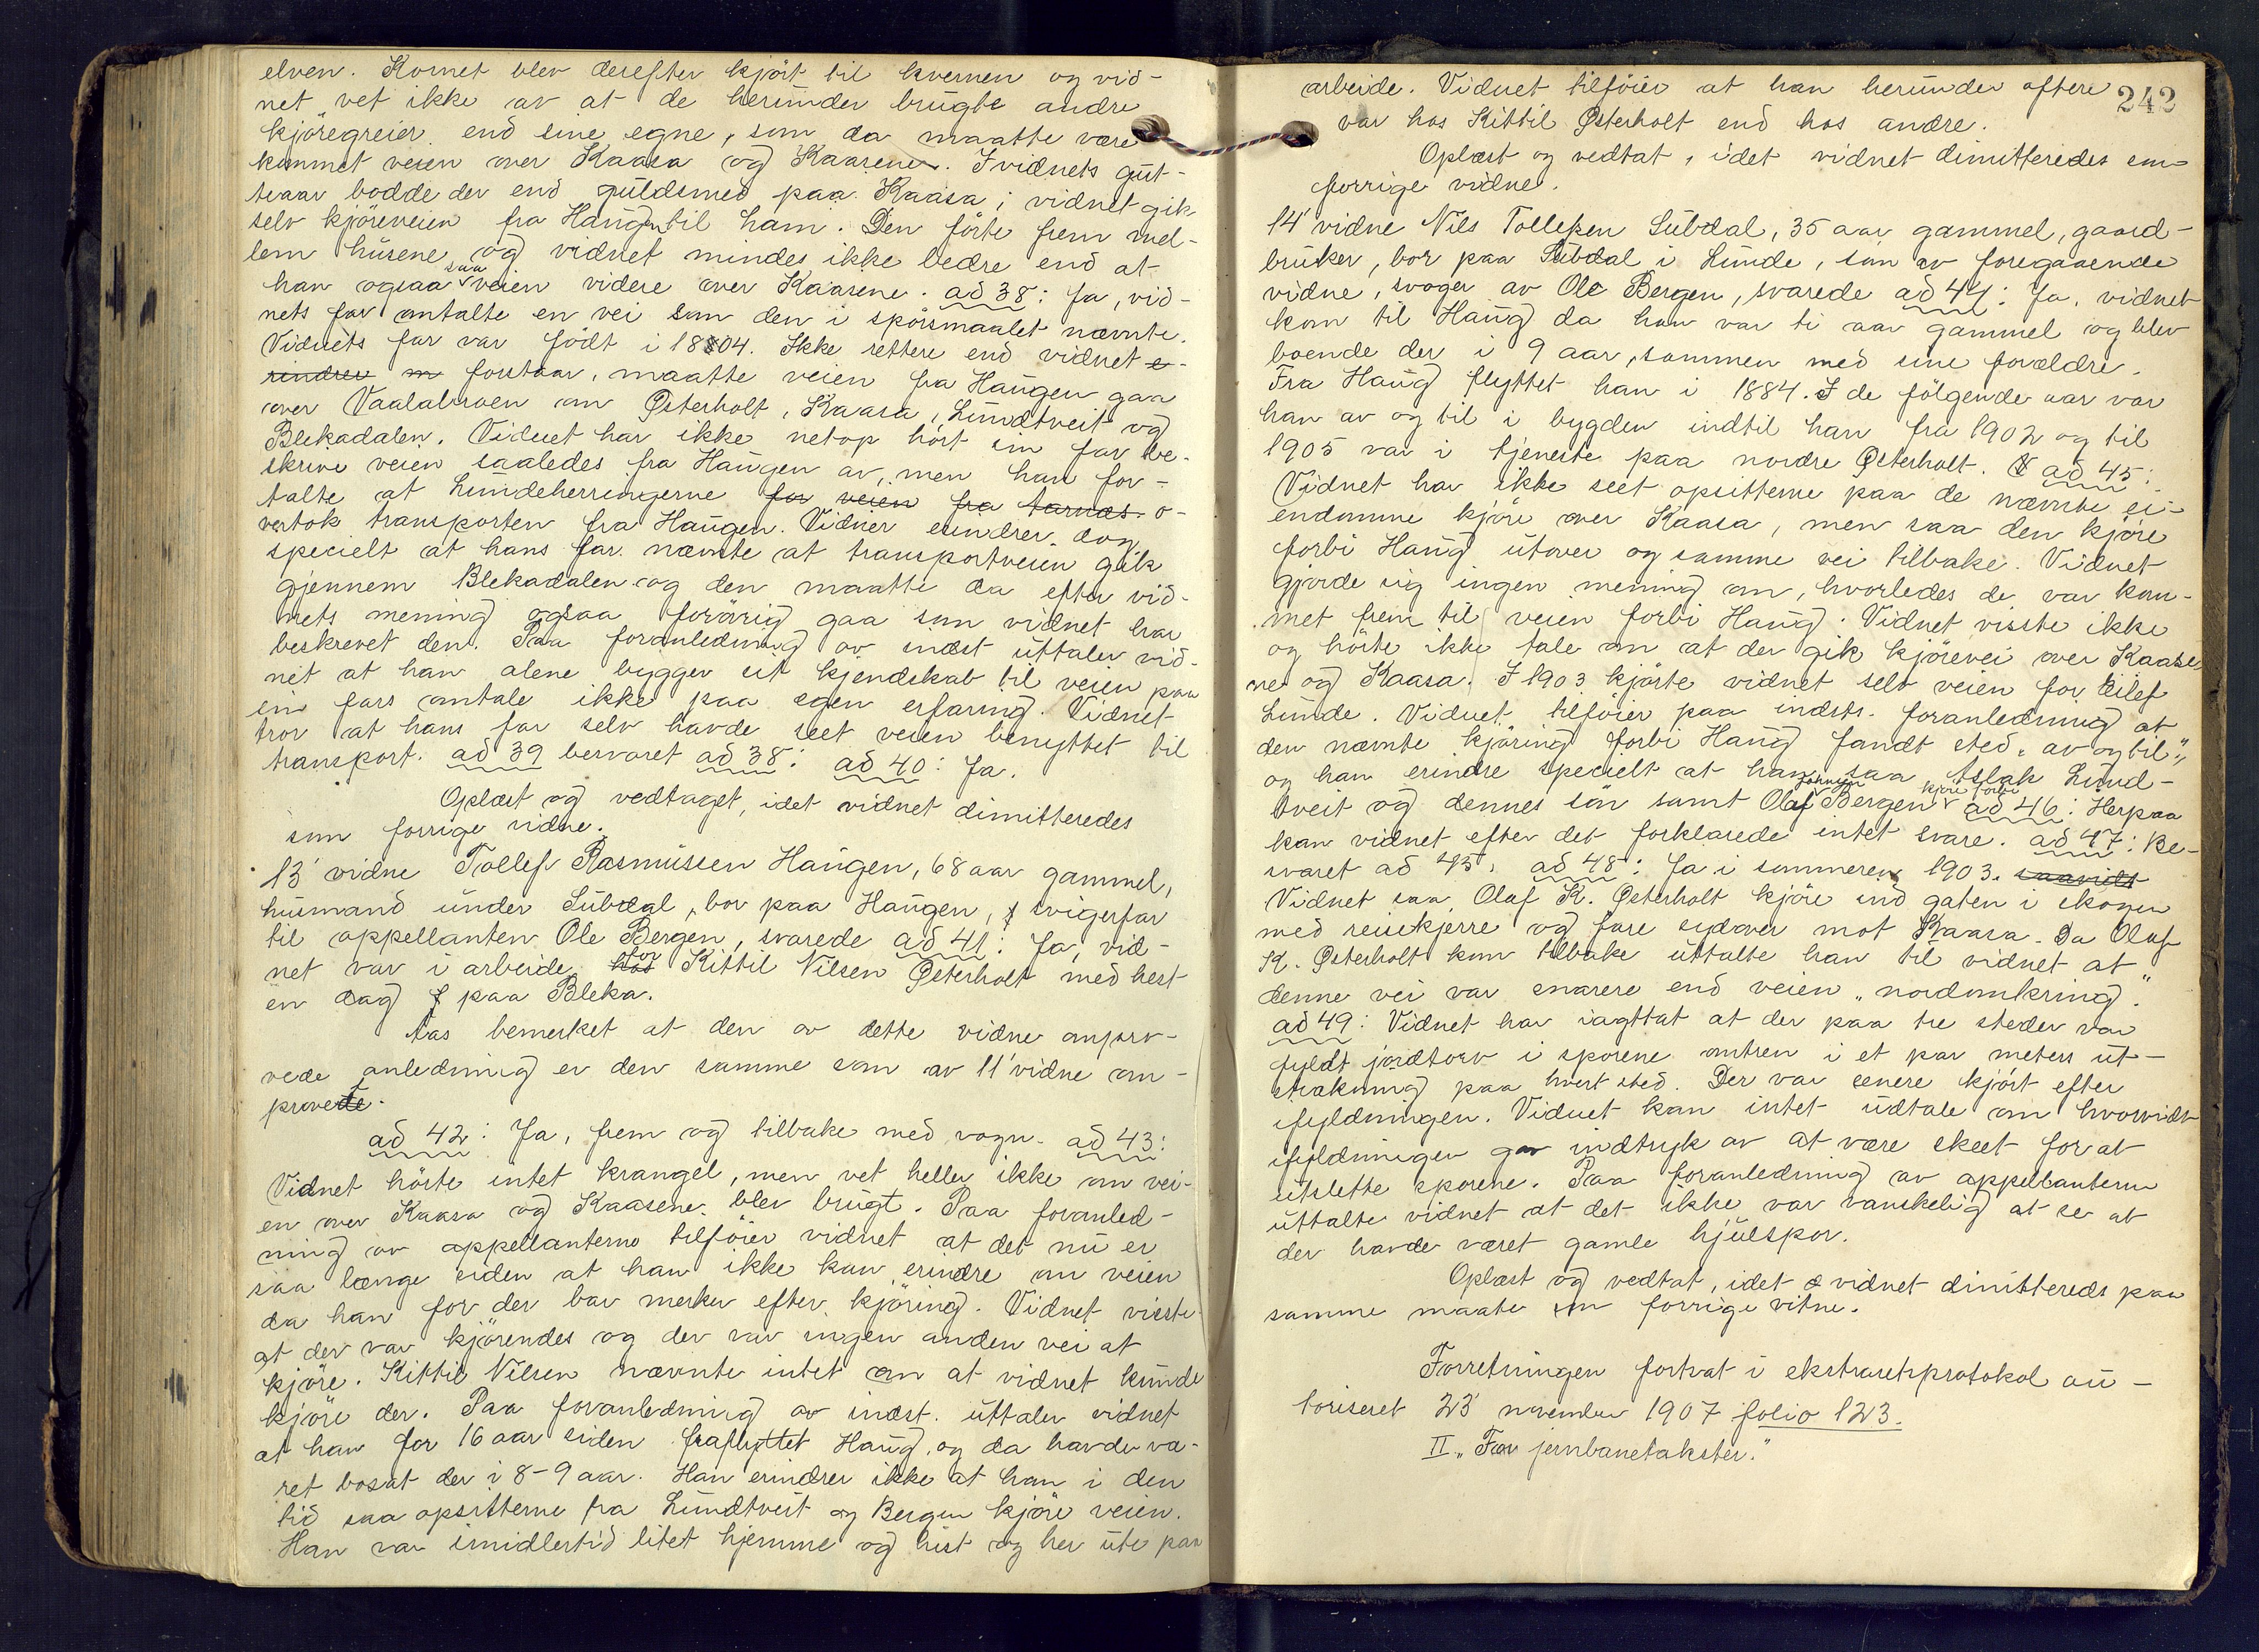 elven. Kornet blev derefter kjørt til kvernen og vid-
net vet ikke av at de herunder brugte andre
kjøregreier end sine egne, som da maatte være
kommet veien over Kaasa og Kaasene. I vidnets gut-
teaar bodde der end guldsmed paa Kaasa; vidnet gik
selv kjøreveien fra Haugen til ham. Den førte frem mel-
lem husene og vidnet mindes ikke bedre end at
han ogsaa saa veien videre over Kaasene. ad 38: Ja, vid-
nets far omtalte en vei som den i spørsmaalet nævnte.
Vidnets far var født i 1804. Ikke rettere end vidnet e-
rindrer m forstaar, maatte veien fra Haugen gaa
over Vaalabroen om Østerholt, Kaasa, Lundtveit og
Blekadalen. Vidnet har ikke netop hørt sin far be-
skrive veien saaledes fra Haugen av, men han for-
talte at Lundeherringerne for veien fra tarnæs o-
vertok transporten fra Haugen. Vidnet erindrer dog
specielt at hans far nævnte at transportveien gik
gjennem Blekadalen og den maatte da efter vid-
nets mening ogsaa forøvrig gaa som vidnet har
beskrevet den. Paa foranledning av indst uttaler vid-
net at han alene bygger sit kjendskab til veien paa
sin fars omtale ikke paa egen erfaring. Vidnet
tror at hans far selv havde seet veien benyttet til
transport. ad 39 besvaret ad 38: ad 40: Ja.
Oplæst og vedtaget, idet vidnet dimitteredes
som forrige vidne.
13' vidne Tollef Rasmussen Haugen, 68 aar gammel,
husmand under Lübdal, bor paa Haugen, svigerfar
til appellanten Ole Bergen, svarede ad 41: Ja, vid-
net var i arbeide hos for Kittil Nilsen Østerholt med hest
en dag paa Bleka.
Aas bemerket at den av dette vidne anprø-
vede anledning er den samme som av 11' vidne om-
provede.
ad 42: Ja, frem og tilbake med vogn. ad 43:
Vidnet hørte intet krangel, men vet heller ikke om vei-
en over Kaasa og Kaasene blev brugt. Paa foranled-
ning av appellanterne tilføier vidnet at det nu er
saa længe siden at han ikke kan erindre om veien
da han for der bar merker efter kjøring. Vidnet visste
at der var kjørendes og der var ingen anden vei at
kjøre. Kittil Nilsen nævnte intet om at vidnet kunde
kjøre der. Paa foranledning av indst. uttaler vidnet
at han for 16 aar siden fraflyttet Haug, og da havde væ-
ret bosat der i 8-9 aar. Han erindrer ikke at han i den
tid saa opsitterne fra Lundtveit og Bergen kjøre veien.
Han var imidlertid litet hjemme og hist og her ute paa
242
arbeide. Vidnet tilføier at han herunder oftere
var hos Kittil Østerholt end hos andre.
Oplæst og vedtat, idet vidnet dimitteredes som
forrige vidne.
14' vidne Nils Tollefsen Lübdal, 35 aar gammel, gaard-
bruker, bor paa Lübdal i Lunde, søn av foregaaende
vidne, svoger av Ole Bergen, svarede ad 44: Ja, vidnet
kom til Haug da han var ti aar gammel og blev
boende der i 9 aar, sammen med sine forældre.
Fra Haug flyttet han i 1884. I de følgende aar var
han av og til i bygden indtil han fra 1902 og til
1905 var i tjeneste paa nordre Østerholt. ad 45:
Vidnet har ikke seet opsitterne paa de nævnte ei-
endomme kjøre over Kaasa, men saa den kjøre
forbi Haug utover og samme vei tilbake. Vidnet
gjorde sig ingen mening om, hvorledes de var kom-
met frem til veien forbi Haug. Vidnet visste ikke
og hørte ikke tale om at der gik kjørevei over Kaase
ne og Kaasa. I 1903 kjørte vidnet selv veien for Eilef
Lunde. Vidnet tilføier paa indsts. foranledning at
den nævnte kjøring forbi Haug fandt sted "av og til",
og han erindre specielt at han saa Aslak Lund-
tveit og dennes søn samt Olaf Johnsen Bergen kjøre forbi ad 46: Herpaa
kan vidnet efter det forklarede intet svare. ad 47: Be-
svaret ad 45. ad 48: Ja i sommeren 1903. saavidt
Vidnet saa Olaf K. Østerholt kjøre ind gaten i skogen
med reisekjerre og fare sydover mot Kaasa. Da Olaf
K. Østerholt kom tilbake uttalte han til vidnet at
denne vei var snarere end veien "nordomkring".
ad 49: Vidnet har iagttat at der paa tre steder var
fyldt jordtorv i sporene omtren i et par meters ut-
strækning paa hvert sted. Der var senere kjørt efter
ifyldningen. Vidnet kan intet udtale om hvorvidt
ifyldningen gav indtryk av at være skeet for at
utslette sporene. Paa foranledning av appellanterne
uttalte vidnet at det ikke var vanskelig at se at
der havde været gamle hjulspor.
Oplæst og vedtat, idet vidnet dimittereds paa
samme maate som forrige vitne.
Forretningen fortsat i ekstraretsprotokol au-
toriseret 23' november 1907 folio 123.
II "For jernbanetakster."